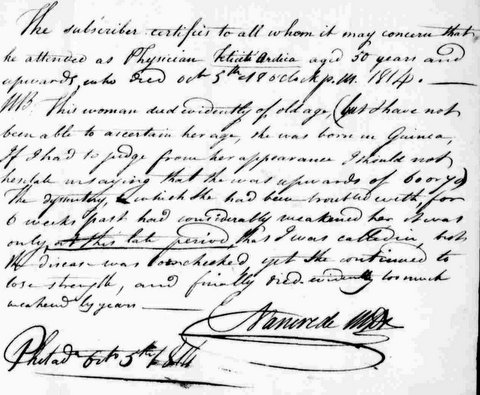 The subscriber certifies to all whom it may concern that
he attended as Physician aged 50 years and
upwards, who died Oct 5th o'clock p.m. 1814. —
NB. This woman died evidently of old age (but I have not
been able to ascertain her age, she was born in Guinea,
If I had to judge from her appearance I should not
hesitate in saying that she was upwards of 60 or 70)
The dysentery, which she had been troubled with, for
6 weeks past had considerably weakened her it was
only, at this late period, that I was called in, but
the disease was checked yet she continued to
lose strength, and finally died evidently too much
weakened by years —
Philada Octr 5th 1814